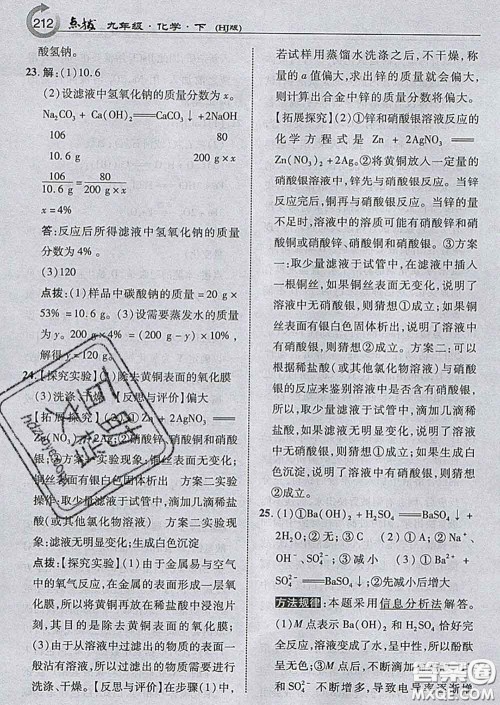 212 点拨 九年级·化学·下 (HJ版)
酸氢钠。
23.解:(1)10.6
(2)设滤液中氢氧化钠的质量分数为x。
Na₂CO₃ + Ca(OH)₂═══CaCO₃↓+2NaOH
106 80
10.6 g 200 g×x
106/10.6 g = 80/(200 g×x)
x=4%
答:反应后所得滤液中氢氧化钠的质量分数为4%。
(3)120
点拨:(1)样品中碳酸钠的质量=20 g×
53%=10.6 g。(3)设需要蒸发水的质量
为y。200 g×4%=(200 g-y)×10%,
解得y=120 g。
24.【探究实验】(1)除去黄铜表面的氧化膜
(3)洗涤、干燥 【反思与评价】偏大
【拓展探究】①Zn + 2AgNO₃═══
Zn(NO₃)₂+2Ag;②硝酸锌、硝酸铜和硝
酸银;③方案一实验现象:铜丝表面无变化;
铜丝表面有银白色固体析出 方案二实验
操作:取少量滤液于试管中,滴加几滴稀盐
酸(或其他氯化物溶液) 方案二实验现象:
滤液无明显变化;生成白色沉淀
点拨:【探究实验】(1)黄铜中的锌与空气中
的氧气反应,在金属的表面形成一层
致密的氧化膜,所以将黄铜片浸入稀盐酸之前要
(3)从溶液中取出的物质的表面一
般沾有溶液,所以此物质需要进行
洗涤、干燥。【反思与评价】在步骤(1)中,
若试样用蒸馏水洗涤之后,不干燥,称
量的a值偏大,求出锌的质量就会偏大,
则计算出合金中锌的质量分数会偏大。
【拓展探究】①锌和硝酸银溶液反应的
化学方程式是 Zn + 2AgNO₃═══
Zn(NO₃)₂+2Ag。②将黄铜放入一定量的
硝酸银溶液中,锌先与硝酸银反应。当锌
反应完后,铜再与硝酸银反应。当锌的量
不足时,溶液中的溶质可能有硝酸锌和硝
酸铜或硝酸锌、硝酸铜和硝酸银。③方案
一:取少量滤液于试管中,在滤液中插入
一根铜丝。如果铜丝表面无变化,说明了
溶液中无硝酸银,则猜想①成立;如果铜
丝表面有银白色固体析出,说明了溶液中
有硝酸银,则猜想②成立。方案二:可以
根据稀盐酸(或其他氯化物溶液)与硝酸
银的反应现象来检验是否有硝酸银。所
以,取少量滤液于试管中,滴加几滴稀盐
酸(或其他氯化物溶液)。如果溶液中无
明显变化,说明了溶液中无硝酸银,则猜
想①成立;如果溶液中生成白色沉淀,说
明了溶液中有硝酸银,则猜想②成立。
25.(1)①Ba(OH)₂ + H₂SO₄═══BaSO₄↓+
2H₂O;②无;③减小 (3)①Ba²⁺ +
SO₄²⁻═══BaSO₄↓;②先减小后增大
方法规律:本题采用信息分析法解答。
(1)M点表示Ba(OH)₂和H₂SO₄恰好完全
反应,溶液变成了水,呈中性,所以酚酞
呈无色;③M点后,溶液中
SO₄²⁻不断增多,导致电导率逐渐增